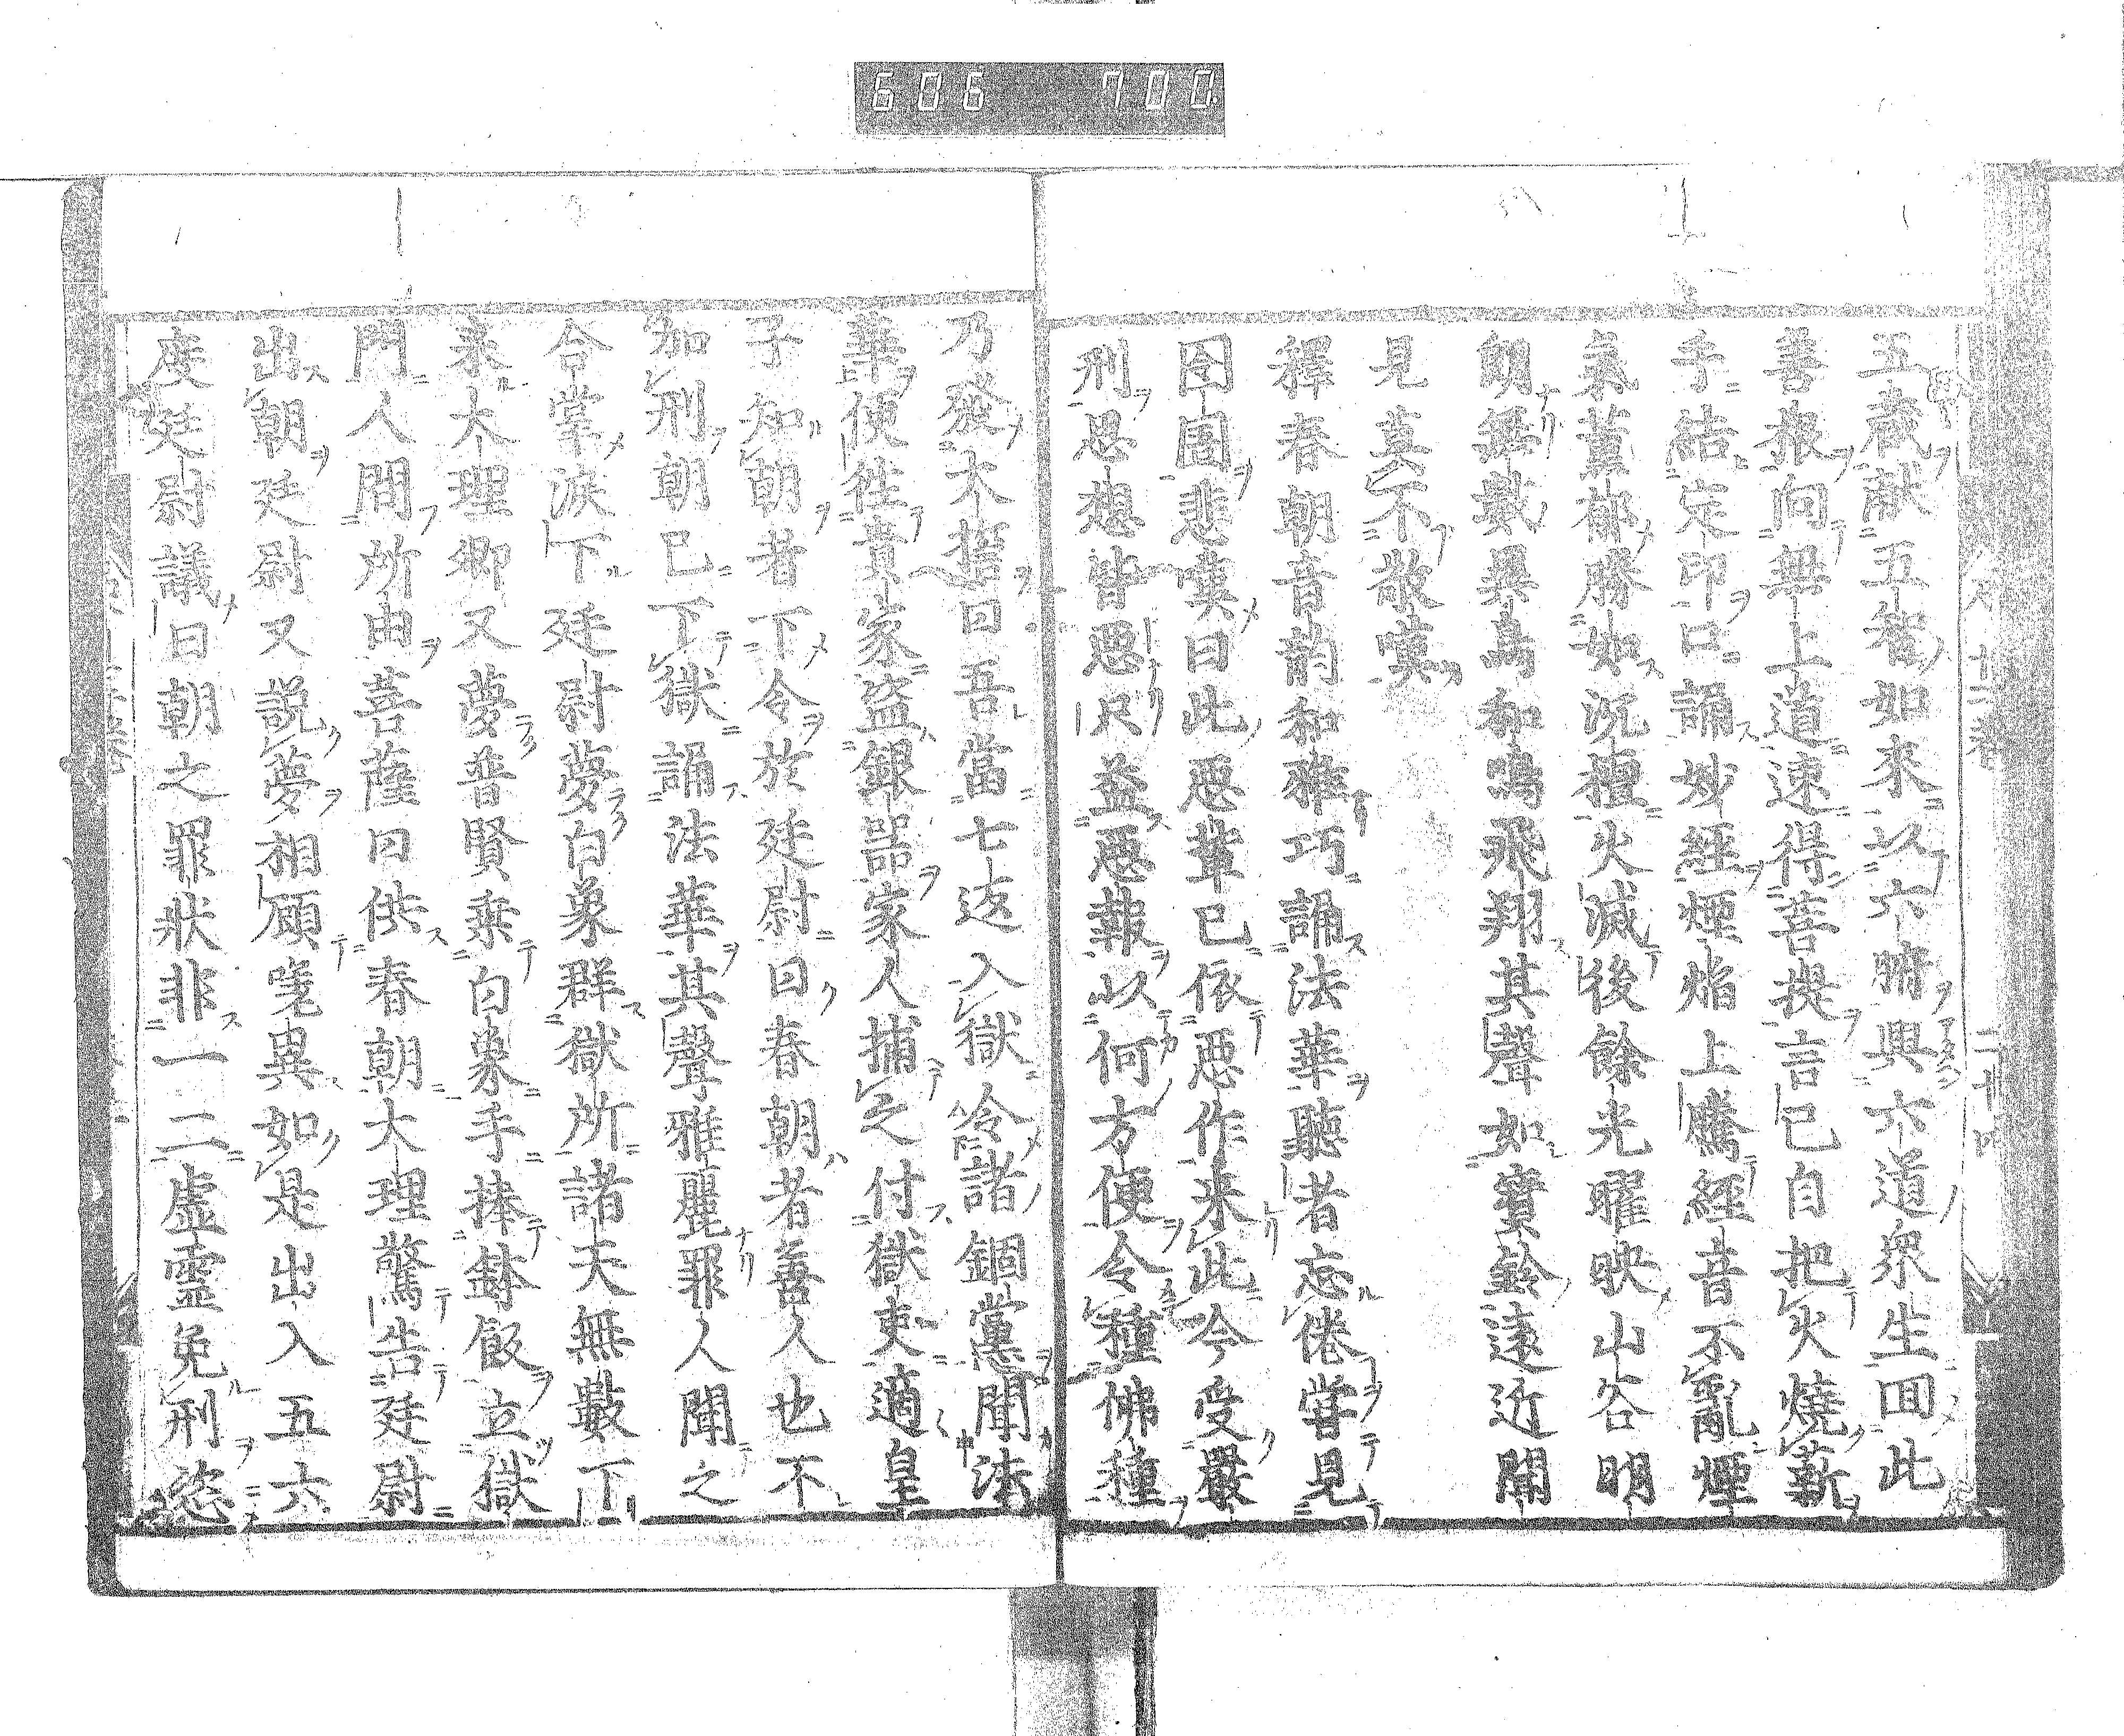 606 700
五藏献五智如來以六腑與六道衆生回此
善根向無上道速得菩提言已自把火燒薪
手結定印口誦妙經煙焔上騰經音不亂煙
氣薰郁勝如沉檀火滅後餘光曜映山谷明
朗無數異鳥和鳴飛翔其聲如寶鈴遠近聞
見莫不敬嘆
釋春朝音韵和雅巧誦法華聽者忘倦甞見
囹圄悲嘆曰此惡輩已依惡作来此今受嚴
刑思想皆惡只益惡報以何方便令種佛種
乃發大揞曰吾當七返入獄令諸錮黨聞法
華便往貴家盗銀器家人捕之付獄吏適皇
子知朝者下令於廷尉曰春朝者善人也不
加刑朝已下獄誦法華其聲雅麗罪人聞之
合掌淚下廷尉夢白象群獄所諸天無數下
来大理卿又夢普賢乘白象手捧鉢飯立獄
門人間所由菩薩曰供春朝大理驚告廷尉
出朝廷尉又説夢相顧寔異如是出入五六
度廷尉議曰朝之罪狀非一二虛霊免刑恣